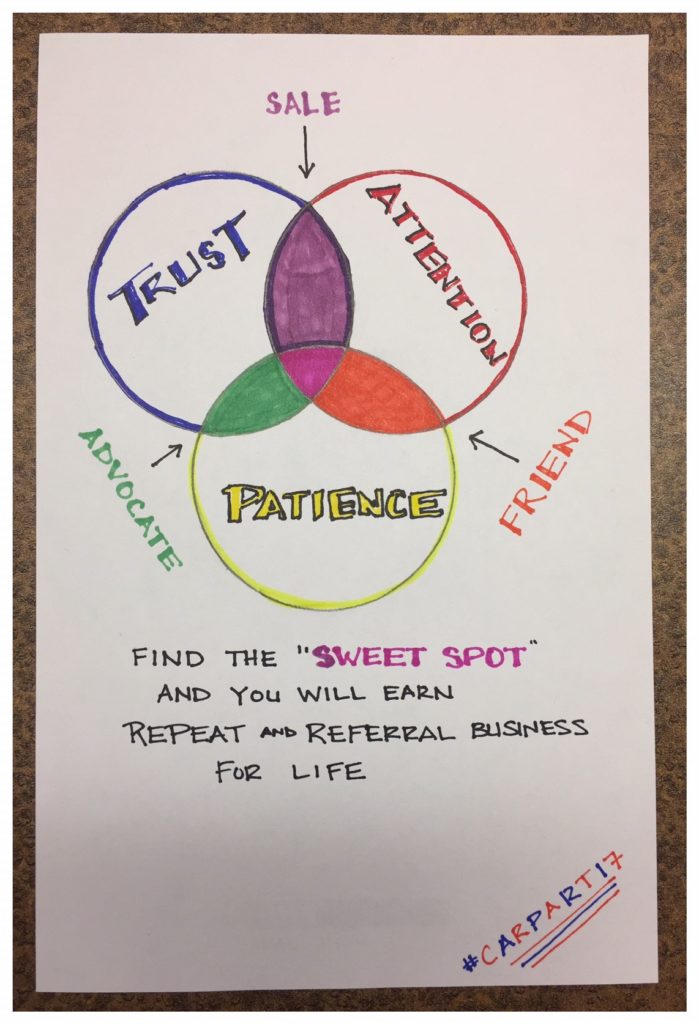 SALE
TRUST
ATTENTION
ADVOCATE
PATIENCE
FRIEND
FIND THE "SWEET SPOT"
AND YOU WILL EARN
REPEAT AND REFERRAL BUSINESS
FOR LIFE
#CARPART17